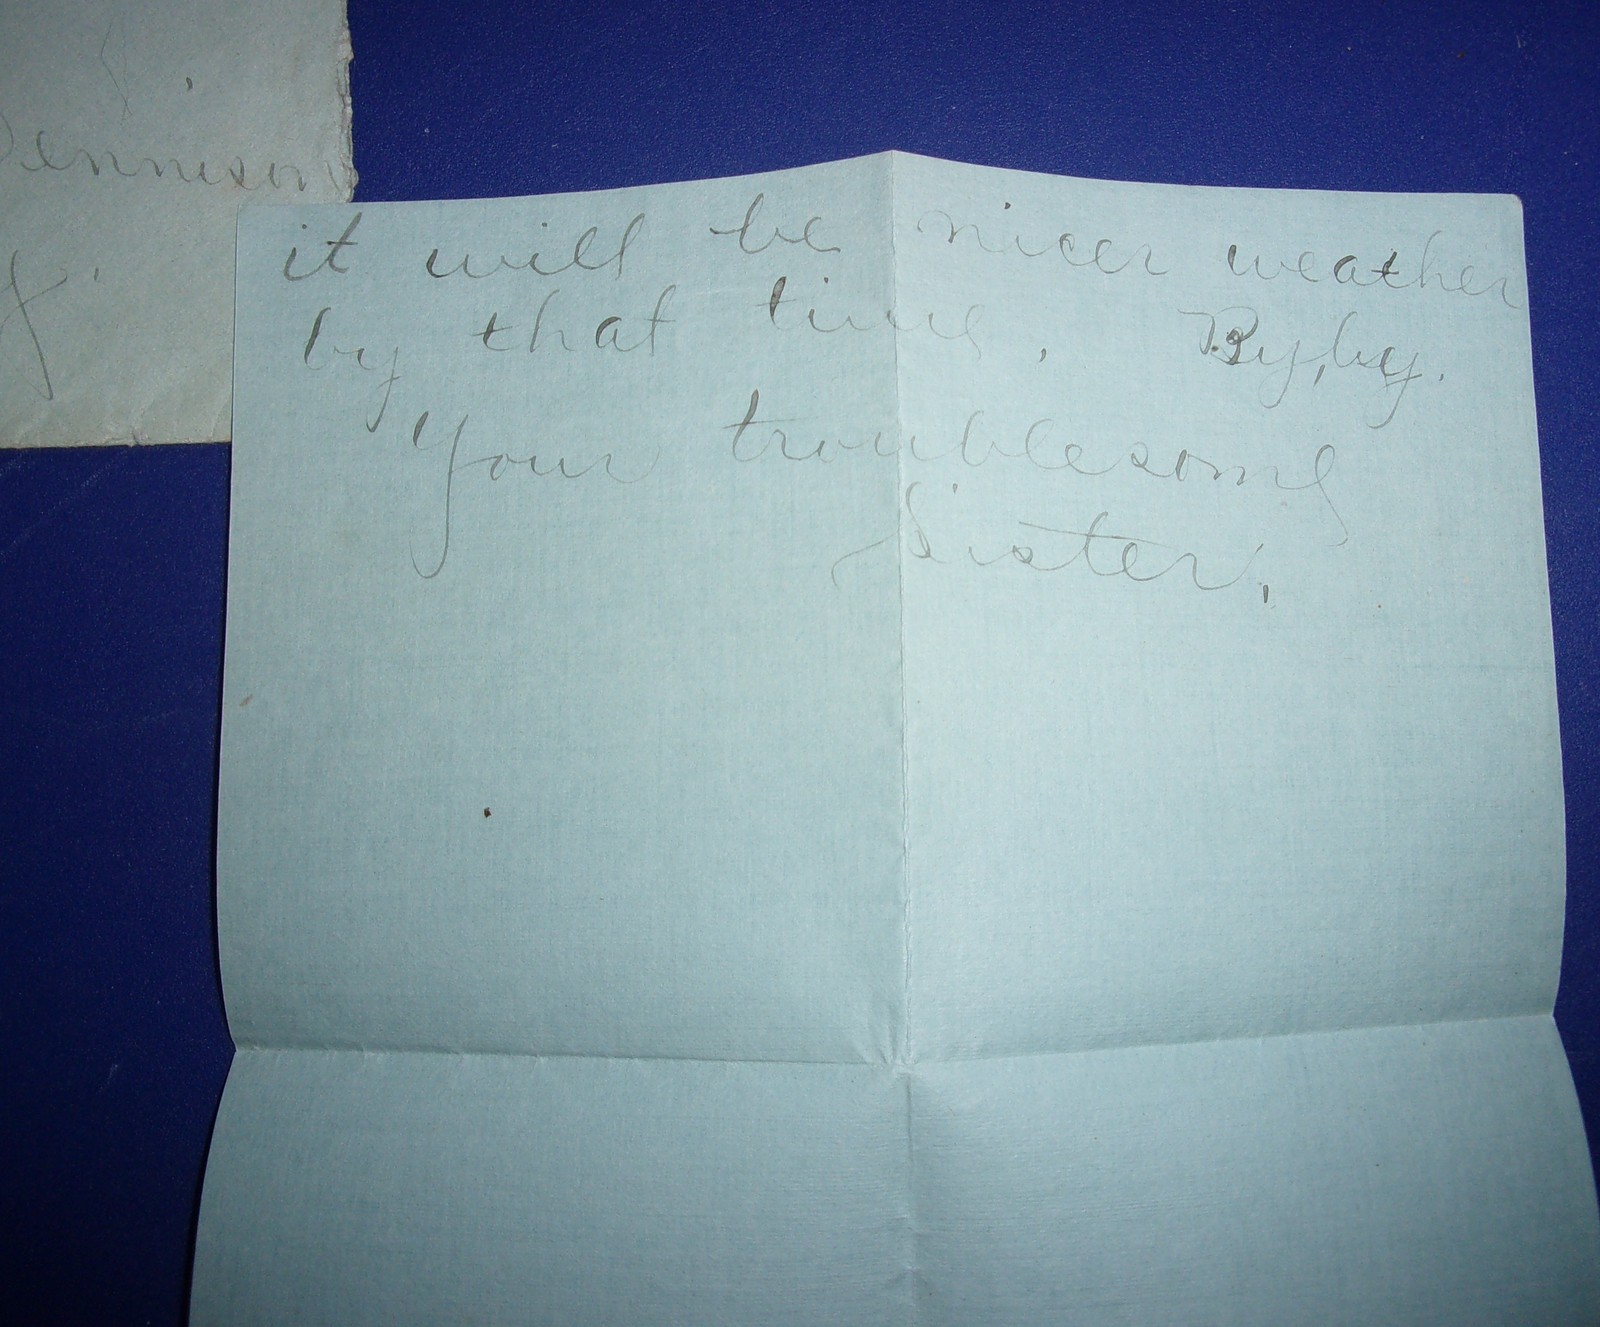 Dennison
y.
it will be nicer weather
by that time. By, by.
Your troublesome
Sister.